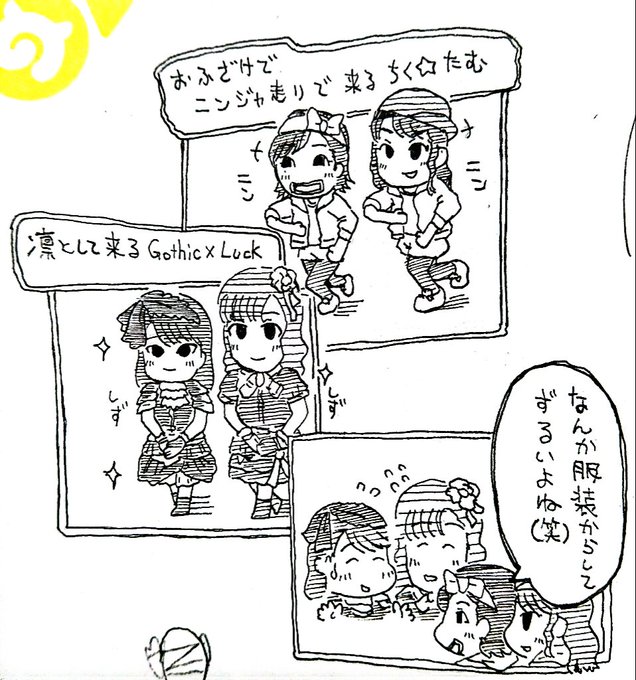 おふざけで
ニンジャ走りで 来る ちく☆たむ
ニン
ニン
凛として来る Gothic×Luck
しず
しず
なんか服装からして
ずるいよね(笑)